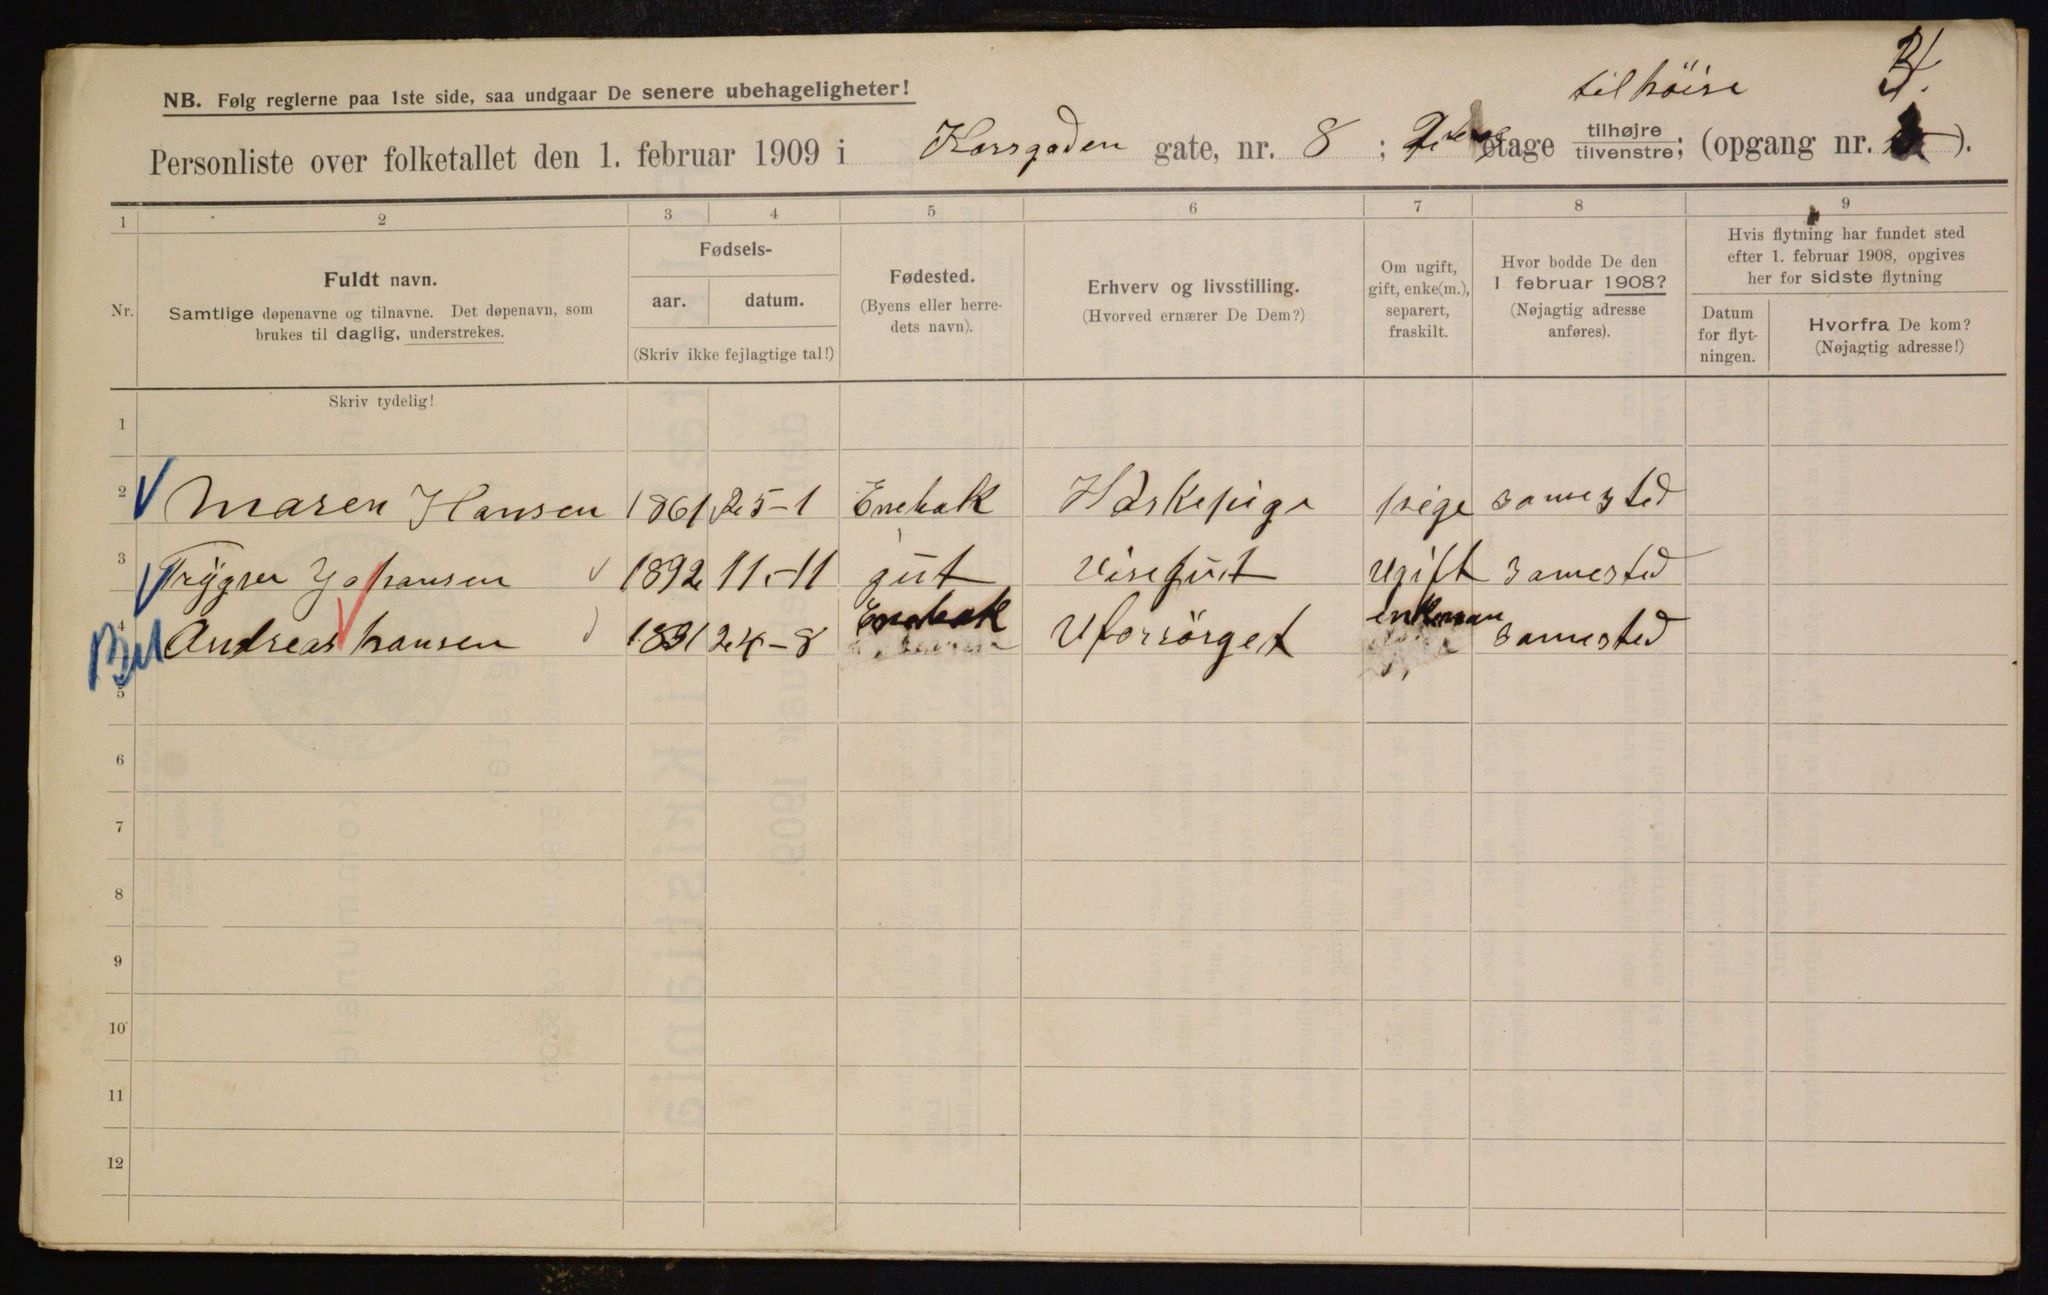 tilhöire
3/.
NB. Følg reglerne paa 1ste side, saa undgaar De senere ubehageligheter!
Personliste over folketallet den 1. februar 1909 i Korsgaden gate, nr. 8 ; 2 etage tilhøjre tilvenstre; (opgang nr. ).
1 2 3 4 5 6 7 8 9
Nr.
Fuldt navn.
Samtlige døpenavne og tilnavne. Det døpenavn, som
brukes til daglig, understrekes.
Fødsels-
aar. datum.
(Skriv ikke fejlagtige tal!)
Fødested.
(Byens eller herre-
dets navn).
Erhverv og livsstilling.
(Hvorved ernærer De Dem?)
Om ugift,
gift, enke(m.),
separert,
fraskilt.
Hvor bodde De den
1 februar 1908?
(Nøjagtig adresse
anføres).
Hvis flytning har fundet sted
efter 1. februar 1908, opgives
her for sidste flytning
Datum
for flyt-
ningen.
Hvorfra De kom?
(Nøjagtig adresse!)
Skriv tydelig!
1
2 Maren Hansen 1861 25-1 Enebak Vaskepige pige samested
3 Trygve Johansen 1892 11-11 gut Visegut Ugift samested
4 Andreas hansen 1831 24-8 Enebak Uforsörget enkeman samested
5
6
7
8
9
10
11
12